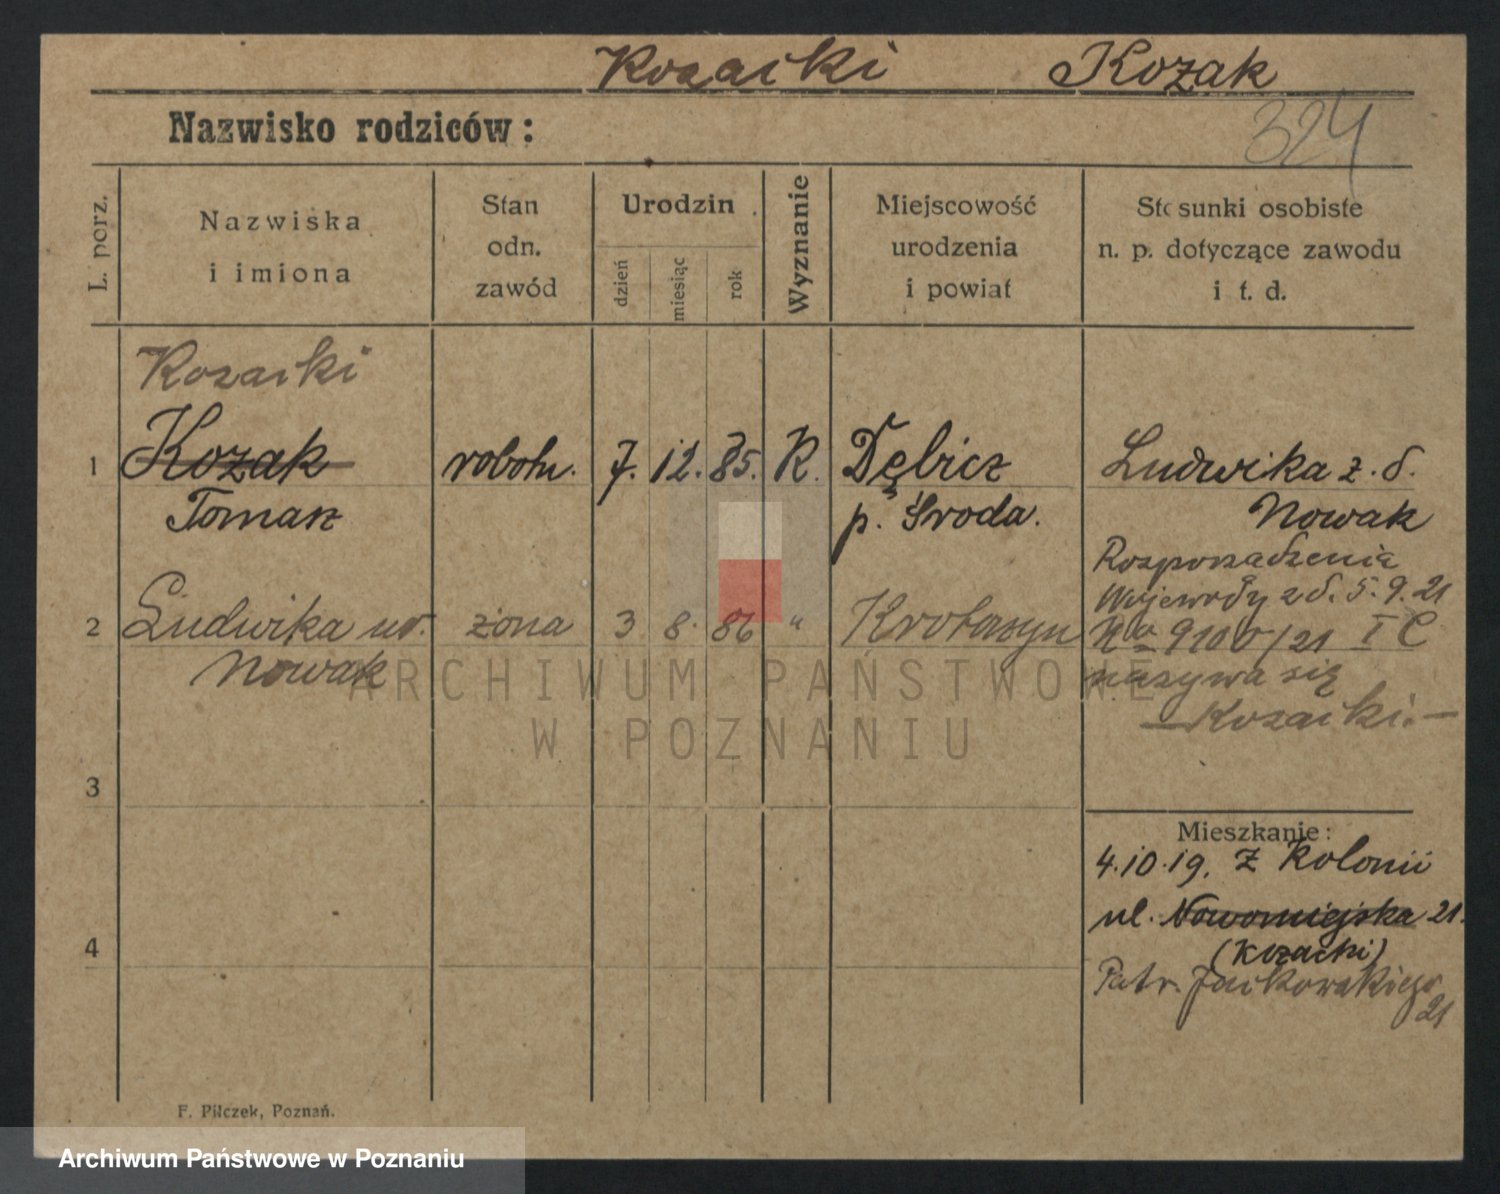 Kozacki Kozak
324
Nazwisko rodziców:
L. porz.
Nazwiska
i imiona
Stan
odn.
zawód
Urodzin
dzień
miesiąc
rok
Wyznanie
Miejscowość
urodzenia
i powiat
Stosunki osobiste
n. p. dotyczące zawodu
i t. d.
Kozacki
1 Kozak robotn. 7. 12. 85. K. Dębicz Ludwika z. d.
Tomasz p. Środa. Nowak
Rozporządzenia
Wojewody z d. 5. 9. 21
2 Ludwika ur. żona 3 8. 86 " Krotoszyn No 9100/21 I C
Nowak nazywa się
Kozacki.
3
Mieszkanie:
4.10.19. Z Kolonii
ul. Nowomiejska 21.
4 (Kozacki)
Patr. Jackowskiego
21
F. Pilczek, Poznań.
ARCHIWUM PAŃSTWOWE
W POZNANIU
Archiwum Państwowe w Poznaniu